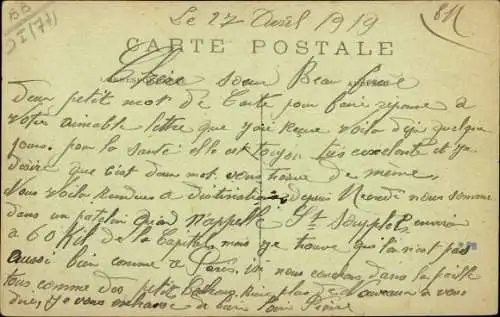 Le 27 Avril 1919
CARTE POSTALE
Chère sœur Beau frère
Deux petit mot de Carte pour faire reponse a
votre aimable lettre que j'ai Reçue voila déjà quelque
jours. pour la santé elle est toujou très excelante et je
désire que c'est deux mot vous trouve de meme,
Nous voila Rendues a distination depuis Mecredi nous somme
dans un patelin quon n'appelle St env
a 60 Kil de la Capitale mais je trouve qu'il n'est pas
aussi bien comme a Paris, ici nous couchons dans la paille
tous comme des petit Rien plus de Nouveaux a vous
dire, Je vous embrasse de bien loin Pierre